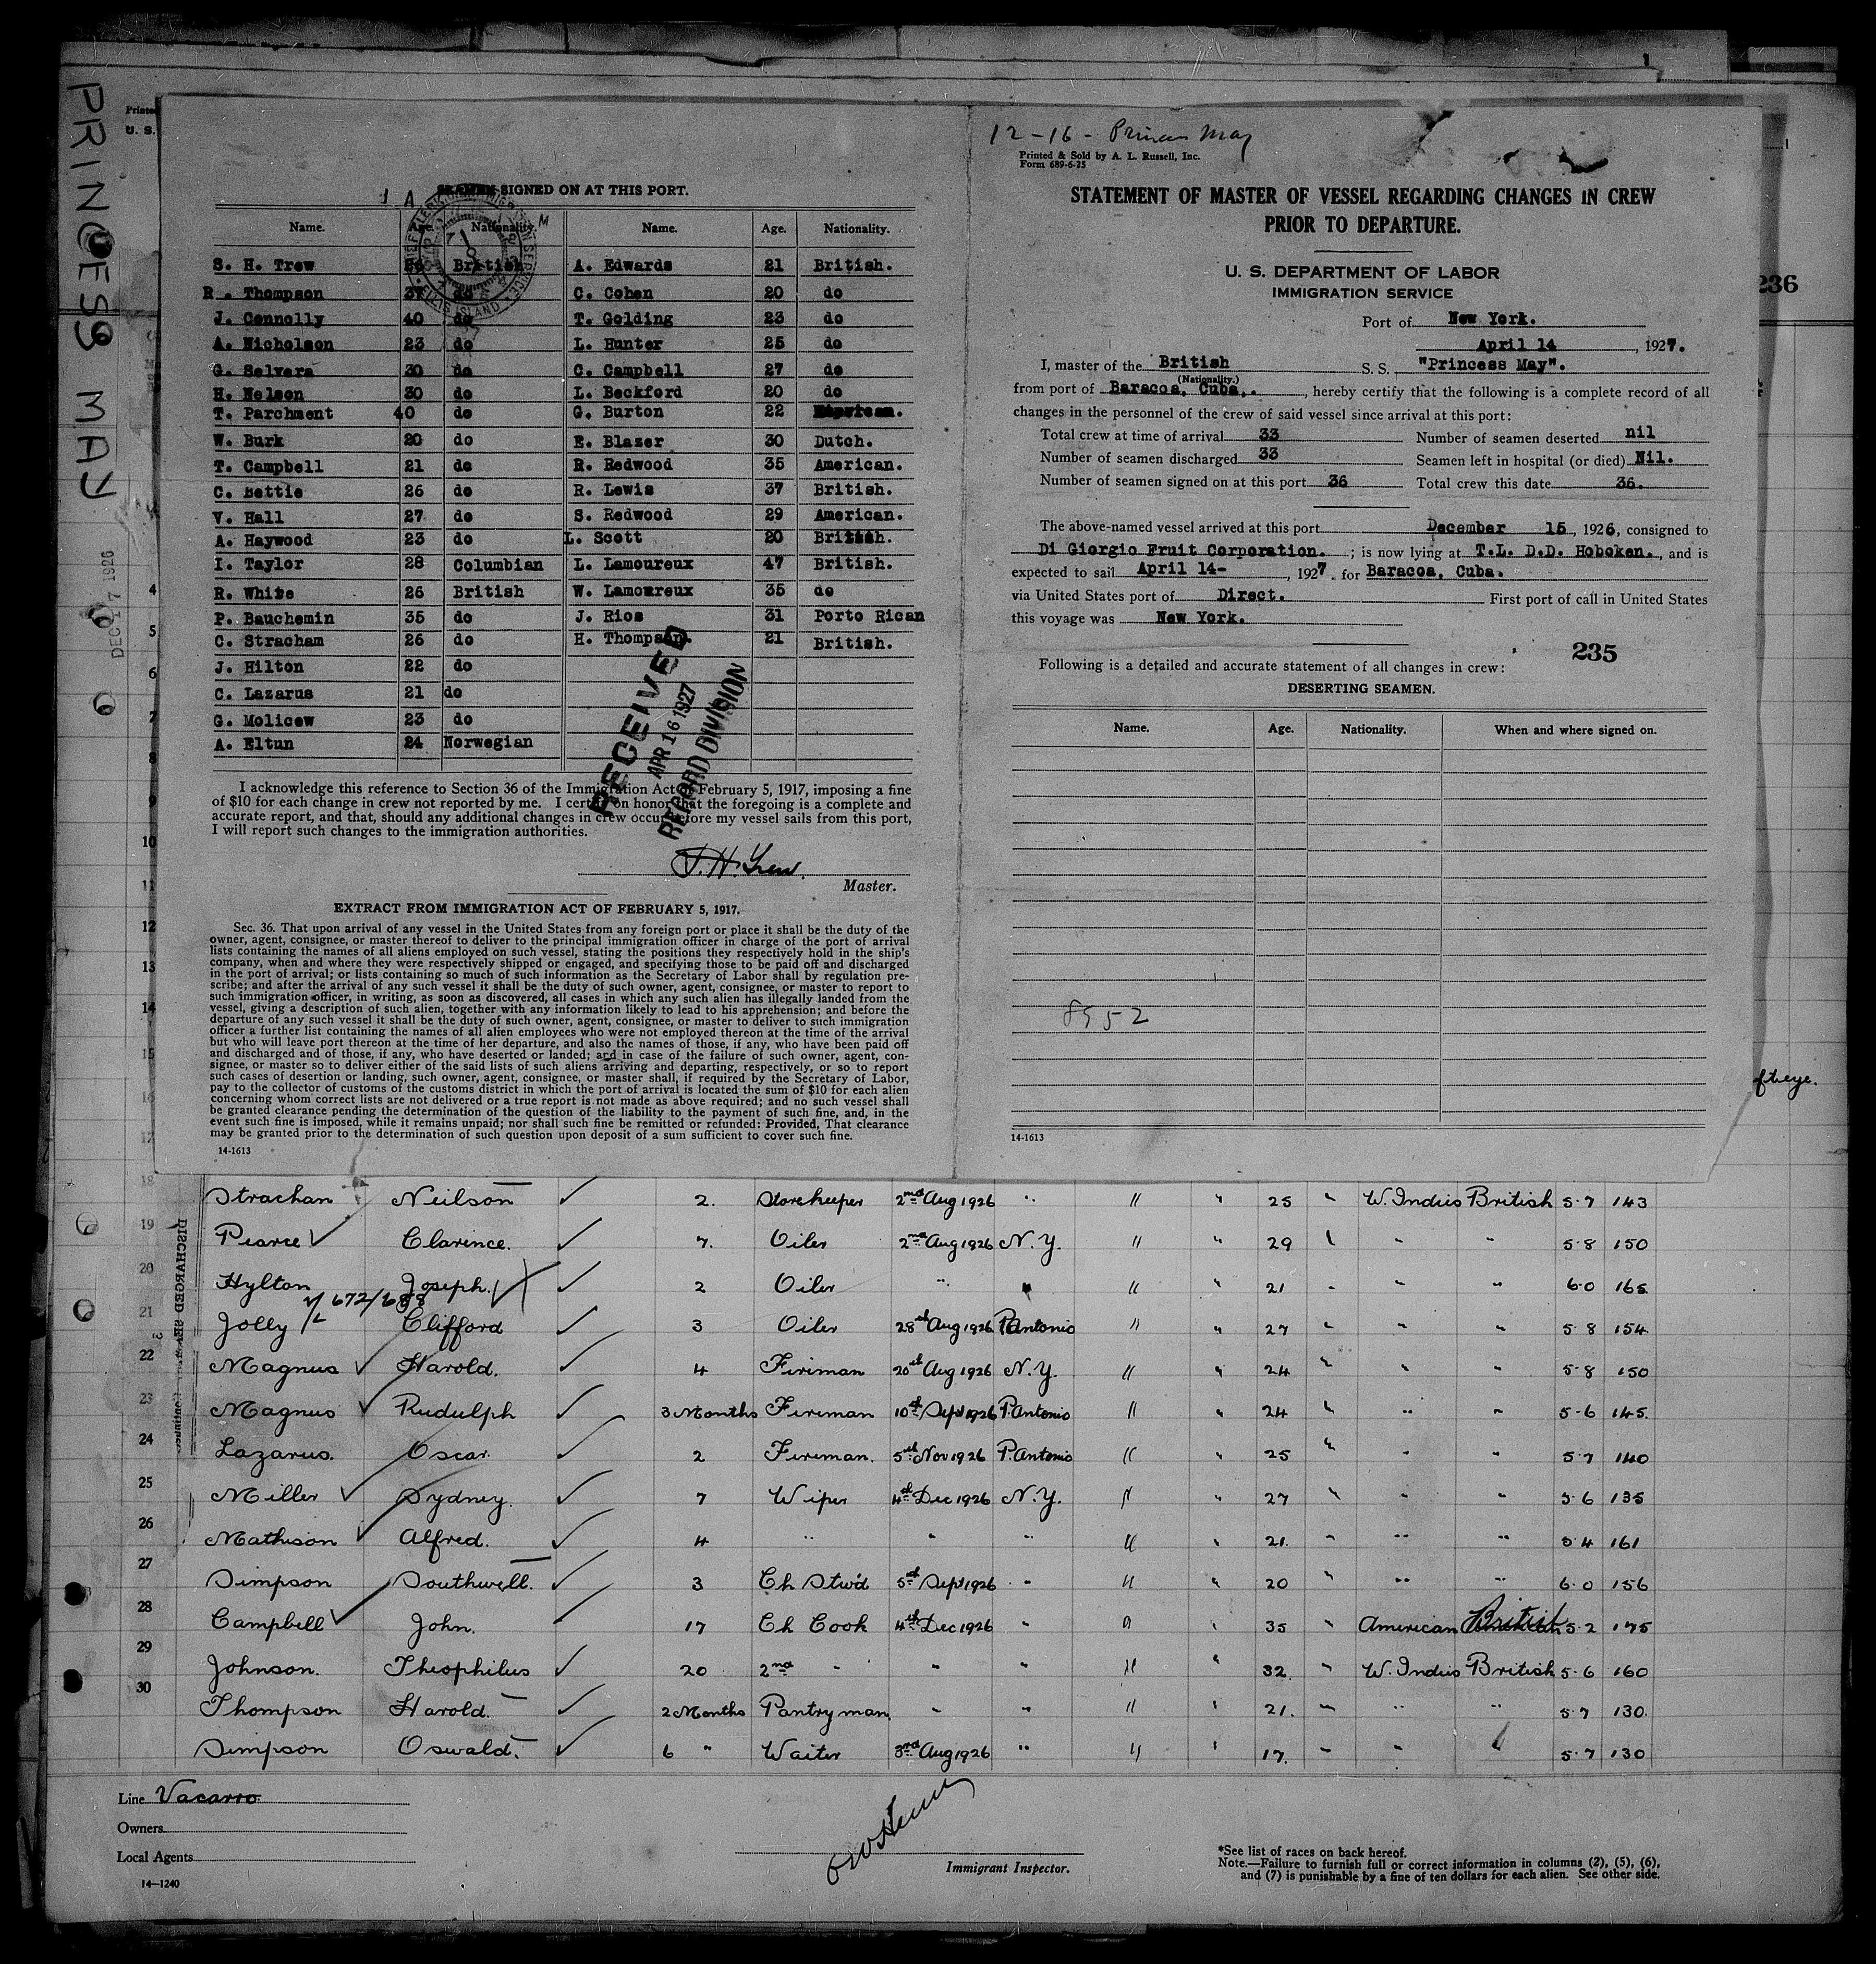 PRINCESS MAY
DEC 17 1926
Printed
U. S.
SEAMEN SIGNED ON AT THIS PORT.
Name. Age. Nationality. Name. Age. Nationality.
S. H. Trew British A. Edwards 21 British.
R. Thompson 37 do C. Cohen 20 do
J. Connolly 40 do T. Golding 23 do
A. Nicholson 23 do L. Hunter 25 do
G. Selvera 30 do C. Campbell 27 do
H. Nelson 30 do L. Beckford 20 do
T. Parchment 40 do G. Burton 22
W. Burk 20 do E. Blazer 30 Dutch.
T. Campbell 21 do R. Redwood 35 American.
C. Bettie 26 do R. Lewis 37 British.
V. Hall 27 do S. Redwood 29 American.
A. Haywood 23 do L. Scott 20 British.
I. Taylor 28 Columbian L. Lamoureux 47 British.
R. White 26 British W. Lamoureux 35 do
P. Bauchemin 35 do J. Rios 31 Porto Rican
C. Stracham 26 do H. Thompson. 21 British.
J. Hilton 22 do
C. Lazarus 21 do
G. Molicew 23 do
A. Eltun 24 Norwegian
RECEIVED
APR 16 1927
RECORD DIVISION
I acknowledge this reference to Section 36 of the Immigration Act of February 5, 1917, imposing a fine
of $10 for each change in crew not reported by me. I certify on honor that the foregoing is a complete and
accurate report, and that, should any additional changes in crew occur before my vessel sails from this port,
I will report such changes to the immigration authorities.
S. H. Trew.
Master.
EXTRACT FROM IMMIGRATION ACT OF FEBRUARY 5, 1917.
Sec. 36. That upon arrival of any vessel in the United States from any foreign port or place it shall be the duty of the
owner, agent, consignee, or master thereof to deliver to the principal immigration officer in charge of the port of arrival
lists containing the names of all aliens employed on such vessel, stating the positions they respectively hold in the ship's
company, when and where they were respectively shipped or engaged, and specifying those to be paid off and discharged
in the port of arrival; or lists containing so much of such information as the Secretary of Labor shall by regulation pre-
scribe; and after the arrival of any such vessel it shall be the duty of such owner, agent, consignee, or master to report to
such immigration officer, in writing, as soon as discovered, all cases in which any such alien has illegally landed from the
vessel, giving a description of such alien, together with any information likely to lead to his apprehension; and before the
departure of any such vessel it shall be the duty of such owner, agent, consignee, or master to deliver to such immigration
officer a further list containing the names of all alien employees who were not employed thereon at the time of the arrival
but who will leave port thereon at the time of her departure, and also the names of those, if any, who have been paid off
and discharged and of those, if any, who have deserted or landed; and in case of the failure of such owner, agent, con-
signee, or master so to deliver either of the said lists of such aliens arriving and departing, respectively, or so to report
such cases of desertion or landing, such owner, agent, consignee, or master shall, if required by the Secretary of Labor,
pay to the collector of customs of the customs district in which the port of arrival is located the sum of $10 for each alien
concerning whom correct lists are not delivered or a true report is not made as above required; and no such vessel shall
be granted clearance pending the determination of the question of the liability to the payment of such fine, and, in the
event such fine is imposed, while it remains unpaid; nor shall such fine be remitted or refunded: Provided, That clearance
may be granted prior to the determination of such question upon deposit of a sum sufficient to cover such fine.
14-1613
12-16- Princess May
Printed & Sold by A. L. Russell, Inc.
Form 689-6-25
STATEMENT OF MASTER OF VESSEL REGARDING CHANGES IN CREW
PRIOR TO DEPARTURE.
U. S. DEPARTMENT OF LABOR
IMMIGRATION SERVICE
Port of New York.
April 14, 1927.
I, master of the British S. S. "Princess May".
(Nationality.)
from port of Baracoa, Cuba,, hereby certify that the following is a complete record of all
changes in the personnel of the crew of said vessel since arrival at this port:
Total crew at time of arrival 33 Number of seamen deserted nil
Number of seamen discharged 33 Seamen left in hospital (or died) Nil.
Number of seamen signed on at this port 36 Total crew this date 36.
The above-named vessel arrived at this port December 15, 1926, consigned to
Di Giorgio Fruit Corporation. ; is now lying at T.L. D.D. Hoboken., and is
expected to sail April 14-, 1927. for Baracoa, Cuba.
via United States port of Direct. First port of call in United States
this voyage was New York.
235
236
Following is a detailed and accurate statement of all changes in crew:
DESERTING SEAMEN.
Name. Age. Nationality. When and where signed on.
8952
14-1613
4
5
6
7
8
9
10
11
12
13
14
15
16
17
18 Strachan Neilson 2. Storekeeper 2nd Aug 1926 " " " 25 " W. Indies British 5-7 143
19 Pearce Clarence. 7. Oiler 2nd Aug 1926 N.Y. " " 29 " " " 5-8 150
20 Hylton Joseph. 2 Oiler " " " " 21 " " " 6-0 165
672/688
21 Jolly Clifford 3 Oiler 28th Aug 1926 P.Antonio " " 27 " " " 5-8 154
22 Magnus Harold. 4 Fireman 20th Aug 1926 N.Y. " " 24 " " " 5-8 150
23 Magnus Rudulph 3 Months Fireman 10th Sept 1926 P.Antonio " " 24 " " " 5-6 145.
24 Lazarus. Oscar. 2 Fireman. 5th Nov 1926 P.Antonio " " 25 " 5-7 140
25 Miller Sydney. 7 Wiper 4th Dec 1926 N.Y. " " 27 " " " 5-6 135
26 Mathison Alfred. 4 " " " " " 21. " " " 5-4 161
27 Simpson Southwell. 3 Ch Stwd 5th Sept 1926 " " " 20 " " " 6-0 156
28 Campbell John. 17 Ch Cook 4th Dec 1926 " " " 35 " American British 5-2 175
29 Johnson. Theophilus 20 2nd " " " " " 32 " W. Indies British 5-6 160
30 Thompson Harold. 2 Months Pantryman. " " " " 21. " " " 5-7 130.
Simpson Oswald. 6 " Waiter 3rd Aug 1926 " " " 17. " " " 5-7 130
Line Vacarro
Owners
Local Agents
14-1240
Immigrant Inspector.
*See list of races on back hereof.
Note.—Failure to furnish full or correct information in columns (2), (5), (6),
and (7) is punishable by a fine of ten dollars for each alien. See other side.